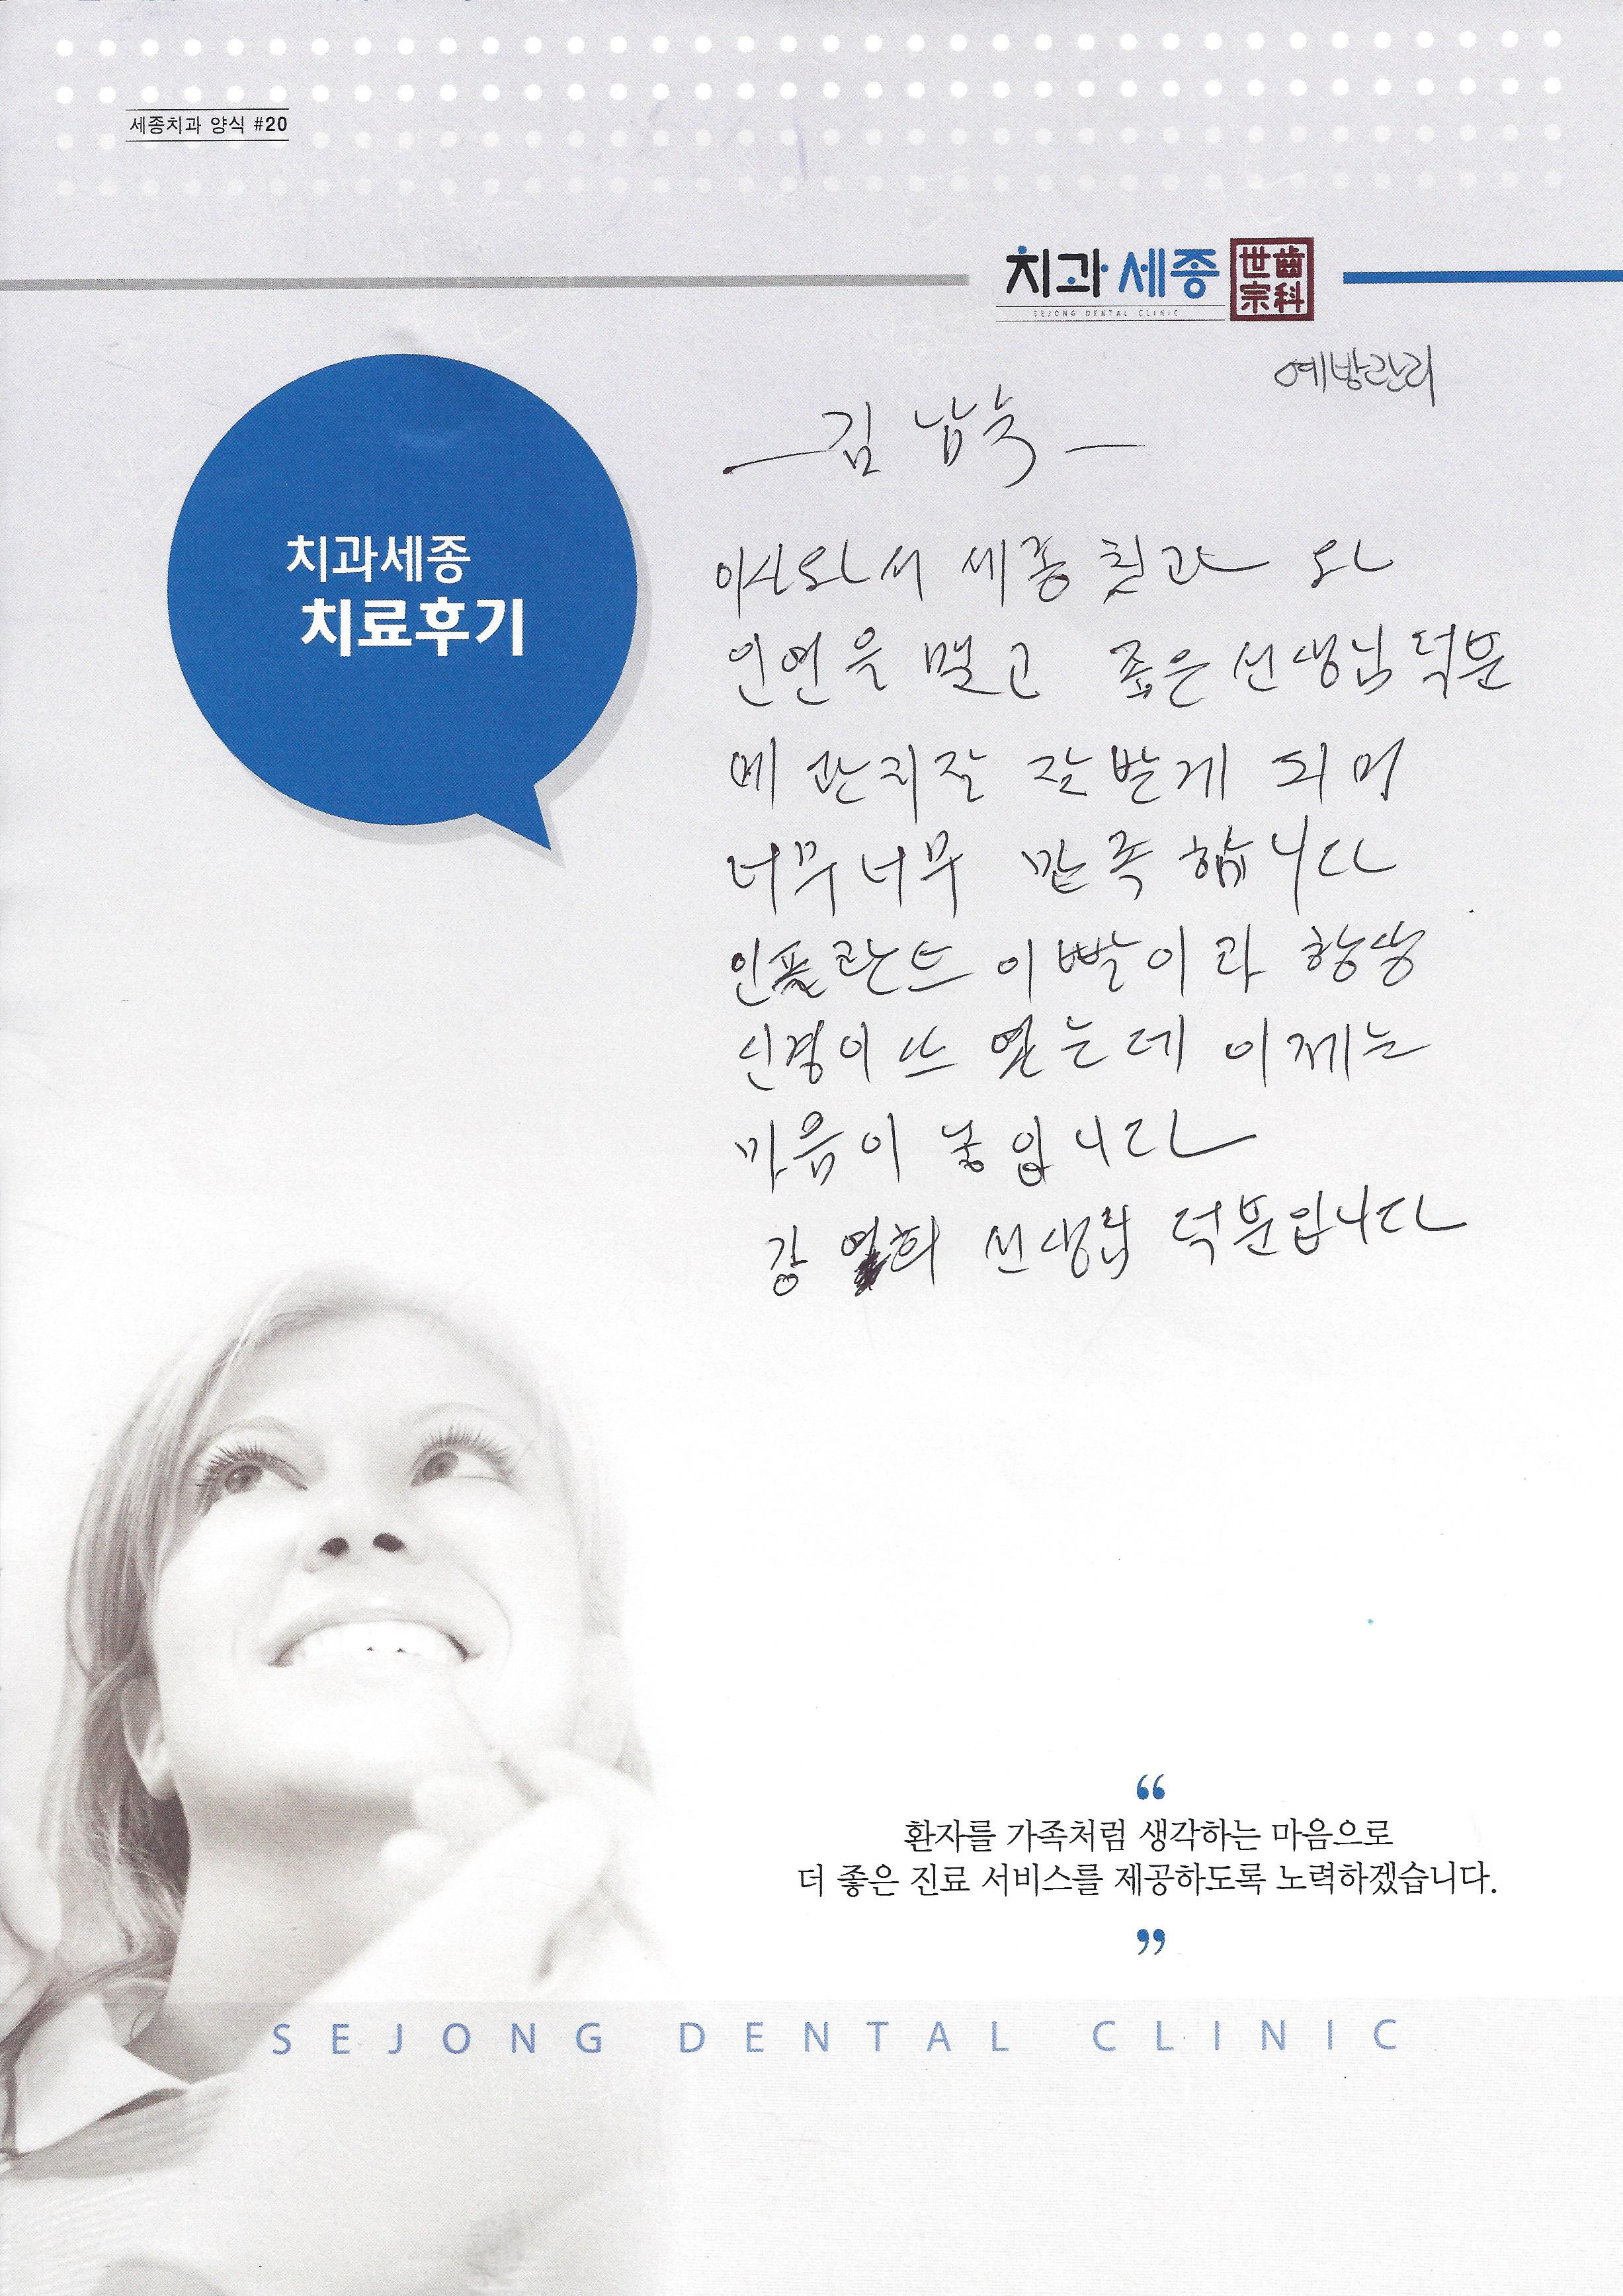 세종치과 양식 #20
치과세종
世齒
宗科
SEJONG DENTAL CLINIC
예방관리
치과세종
치료후기
김남숙
세종칫과 와
인연을 맺고 좋은 선생님 덕분
에 관리잘 잘받게 되어
너무너무 만족 합니다
인플란트 이빨이라 항상
신경이 쓰 였는데 이제는
마음이 놓입니다
강 희 선생님 덕분입니다
“
환자를 가족처럼 생각하는 마음으로
더 좋은 진료 서비스를 제공하도록 노력하겠습니다.
”
SEJONG DENTAL CLINIC